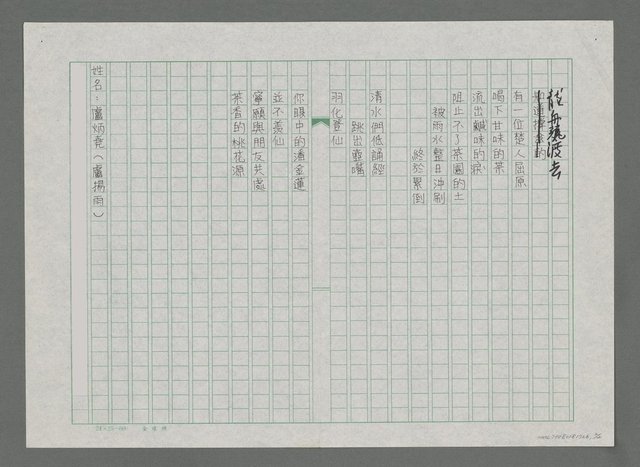 舟飄渡去
有一位楚人屈原
喝下甘味的茶
流出鹹味的淚
阻止不了茶園的土
被雨水整日沖刷
終於累倒
清水們低誦經
跳出壺嘴
羽化登仙
你眼中的潘金蓮
並不羨仙
寧願與朋友共處
茶香的桃花源
姓名：盧炳堯（盧揚雨）